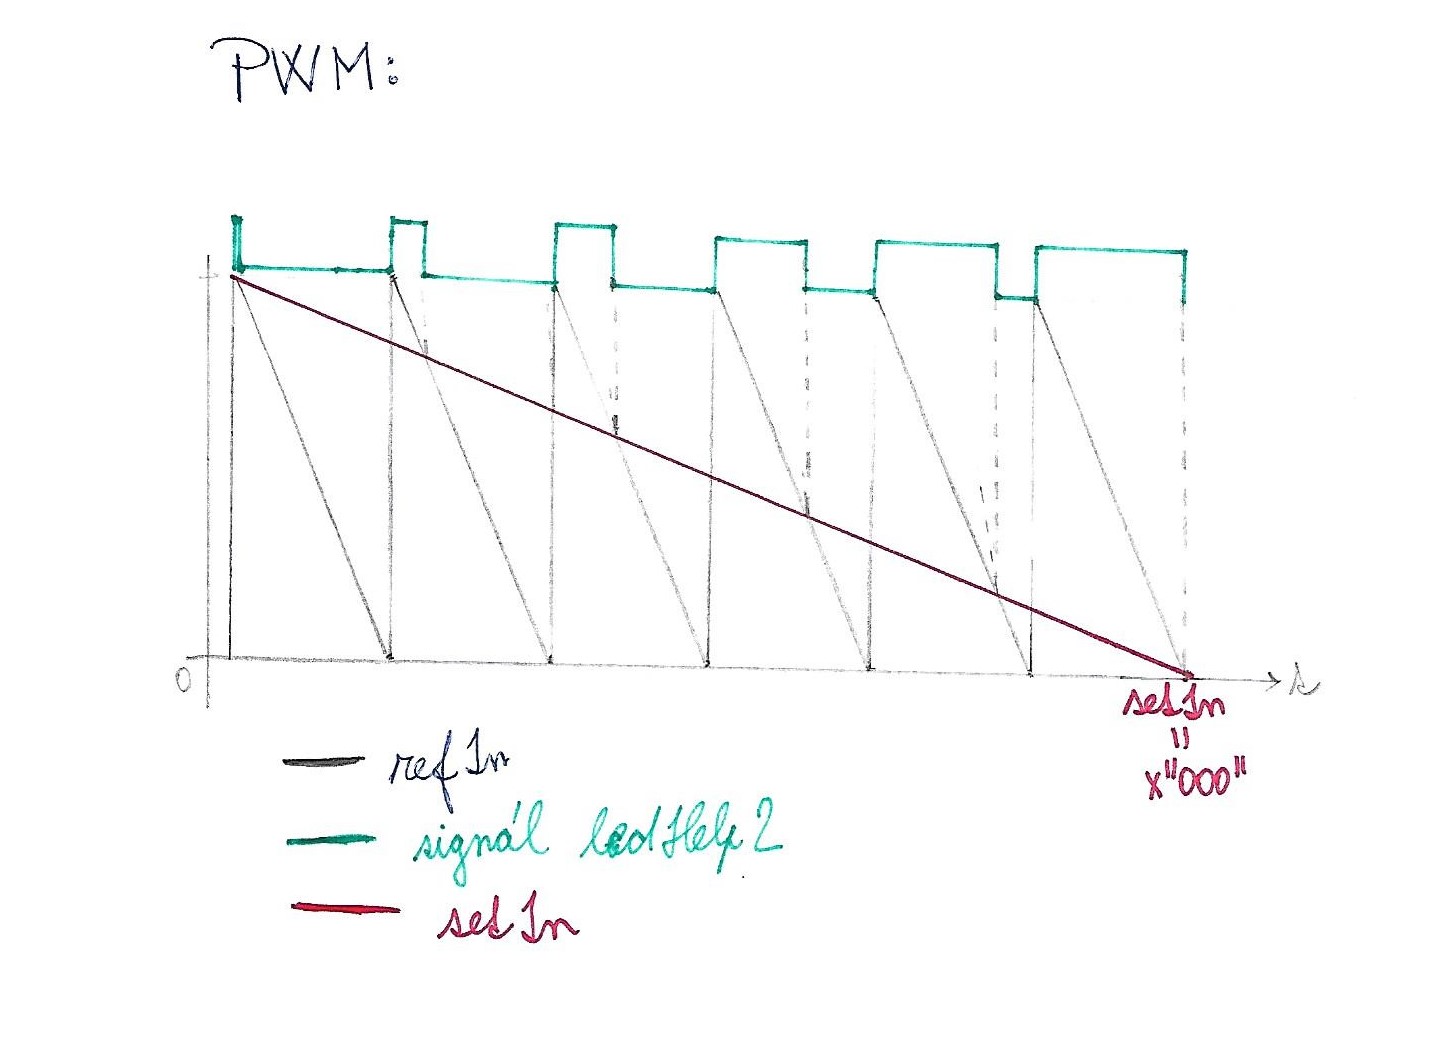 PWM:
0
t
setIn
=
x"000"
refIn
signál ledHelp2
setIn